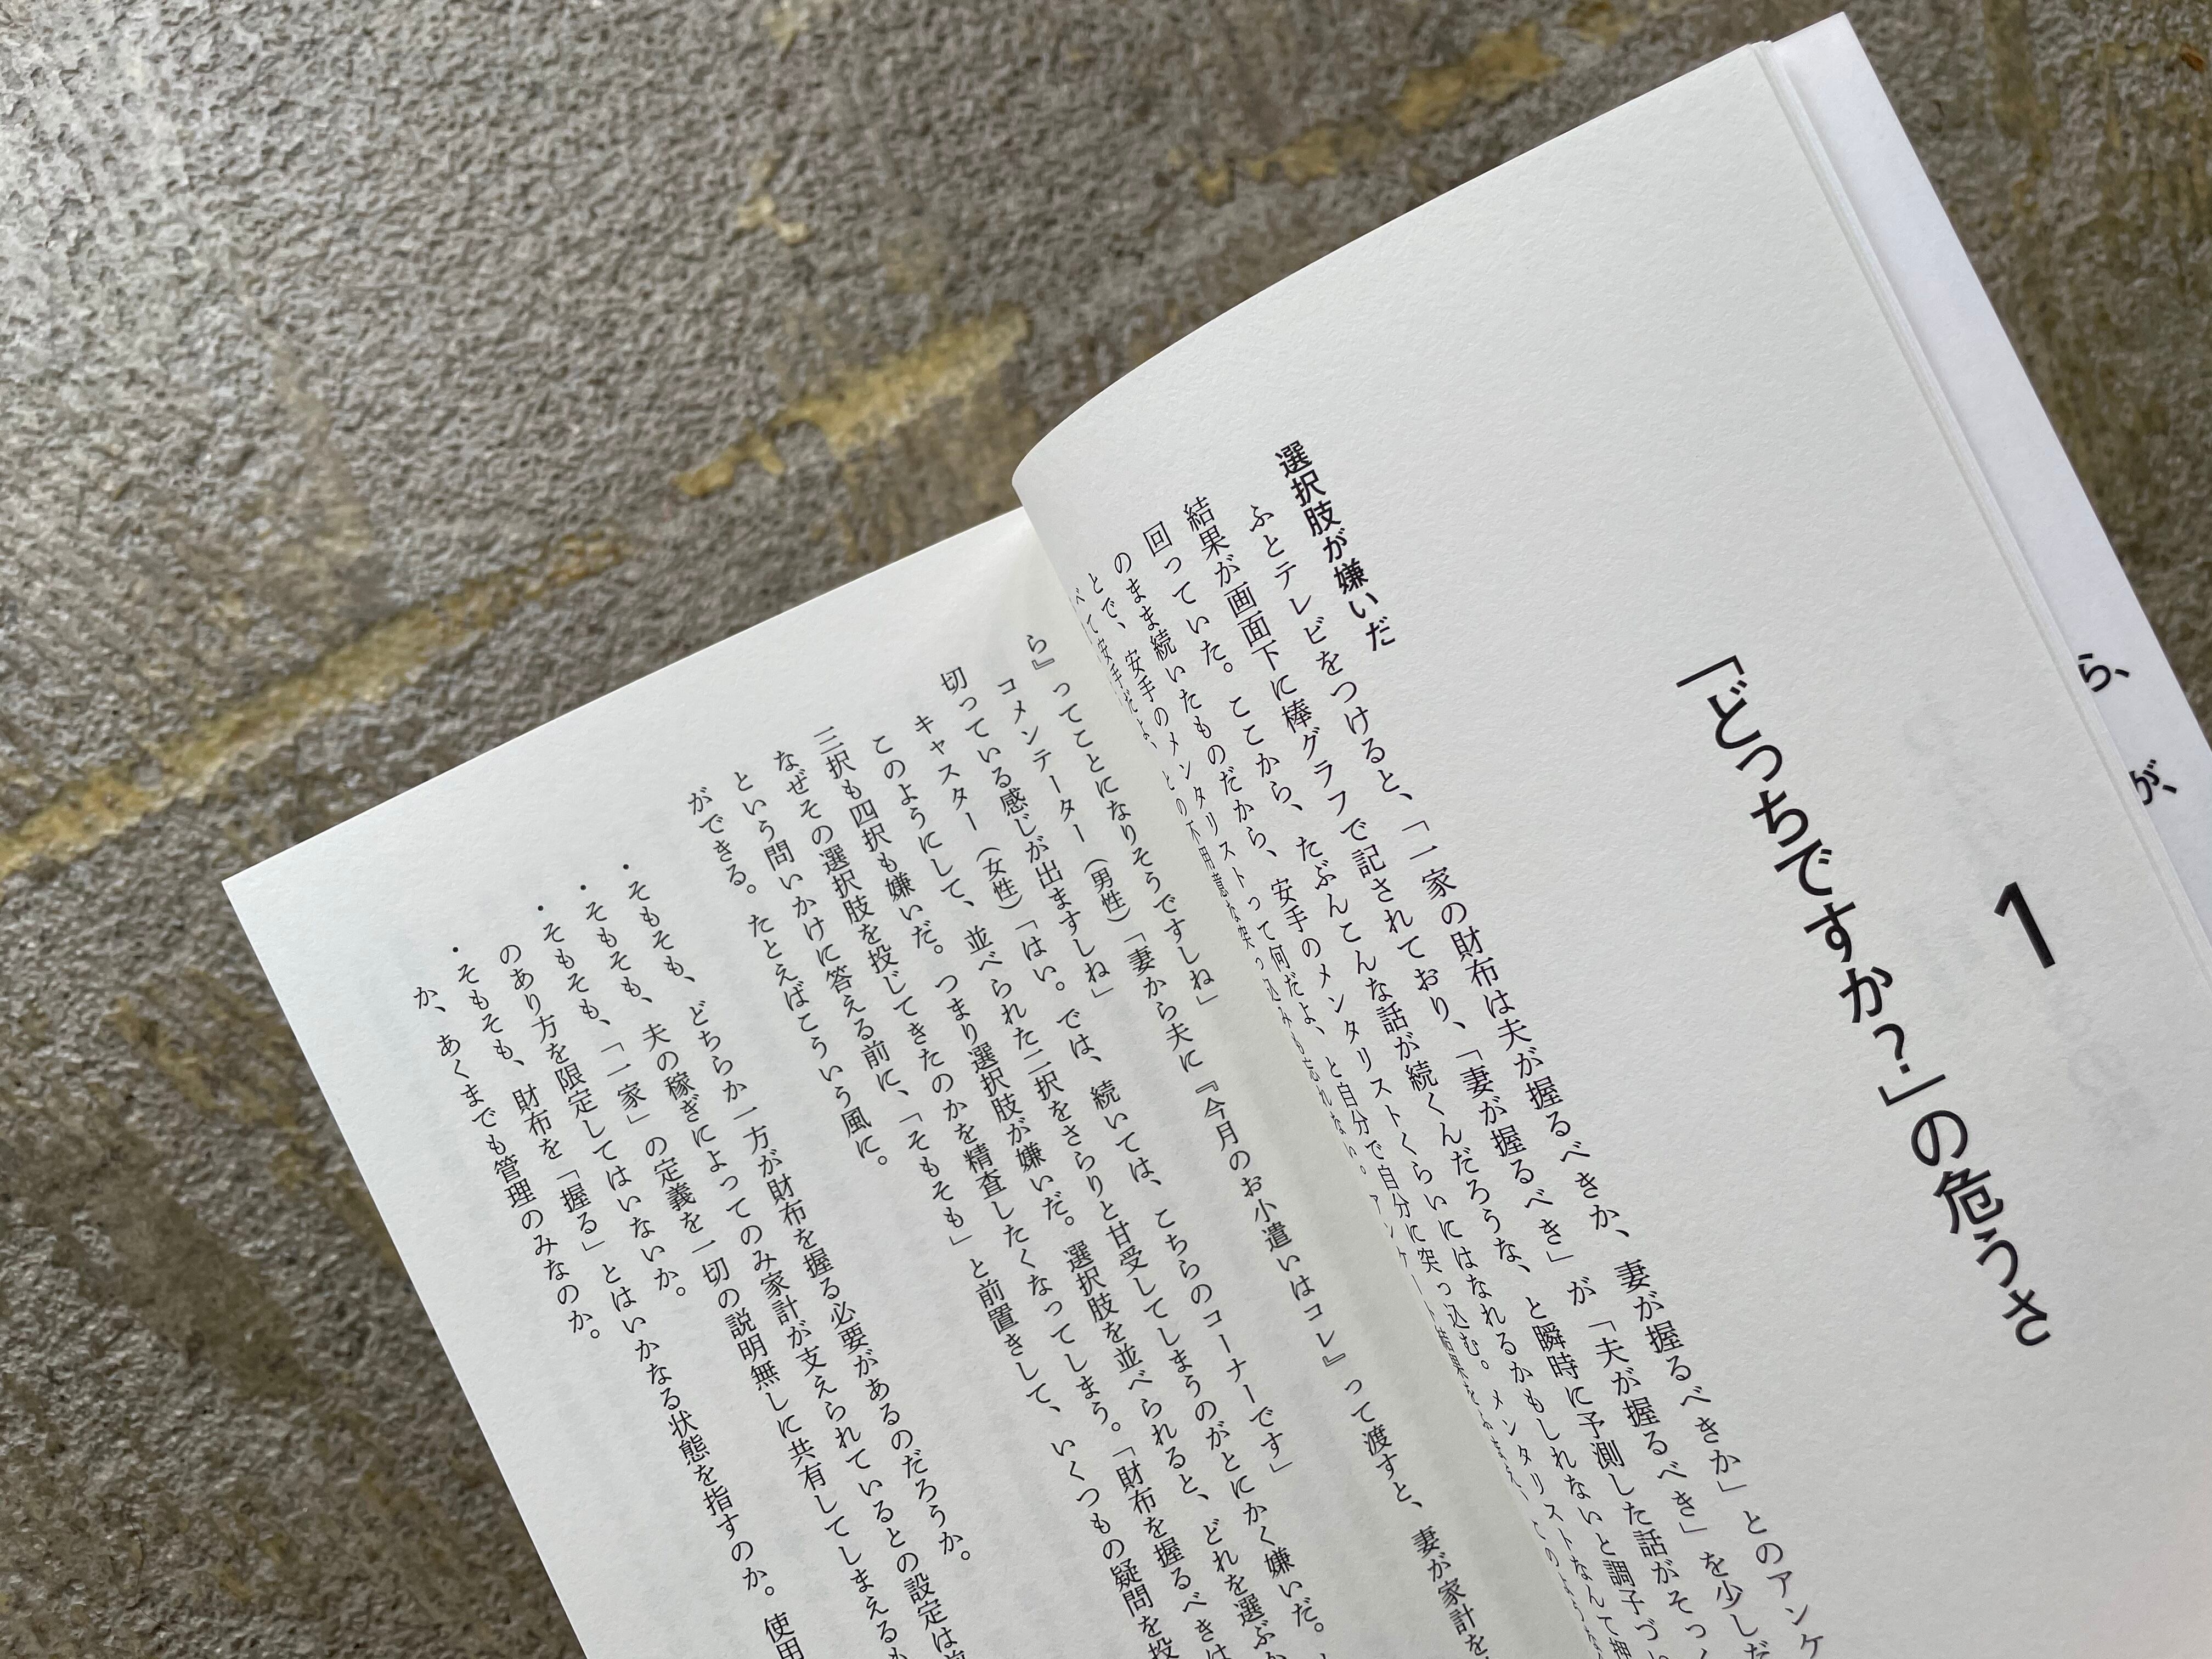 ら、
が、
1
「どっちですか？」の危うさ
選択肢が嫌いだ
ふとテレビをつけると、「一家の財布は夫が握るべきか、妻が握るべきか」とのアンケ
結果が画面下に棒グラフで記されており、「妻が握るべき」が「夫が握るべき」を少しだ
回っていた。ここから、たぶんこんな話が続くんだろうな、と瞬時に予測した話がそっく
のまま続いたものだから、安手のメンタリストくらいにはなれるかもしれないと調子づい
とで、安手のメンタリストって何だよ、と自分で自分に突っ込む。メンタリストなんて押
べて安手だよ、との不用意な突っ込みも忘れない。アンケート結果を
ら』ってことになりそうですしね」
コメンテーター（男性）「妻から夫に『今月のお小遣いはコレ』って渡すと、妻が家計を
切っている感じが出ますしね」
キャスター（女性）「はい。では、続いては、こちらのコーナーです」
このようにして、並べられた二択をさらりと甘受してしまうのがとにかく嫌いだ。
三択も四択も嫌いだ。つまり選択肢が嫌いだ。選択肢を並べられると、どれを選ぶか
なぜその選択肢を投じてきたのかを精査したくなってしまう。「財布を握るべきは
という問いかけに答える前に、「そもそも」と前置きして、いくつもの疑問を投
ができる。たとえばこういう風に。
・そもそも、どちらか一方が財布を握る必要があるのだろうか。
・そもそも、夫の稼ぎによってのみ家計が支えられているとの設定は前
・そもそも、「一家」の定義を一切の説明無しに共有してしまえるも
のあり方を限定してはいないか。
・そもそも、財布を「握る」とはいかなる状態を指すのか。使用
か、あくまでも管理のみなのか。